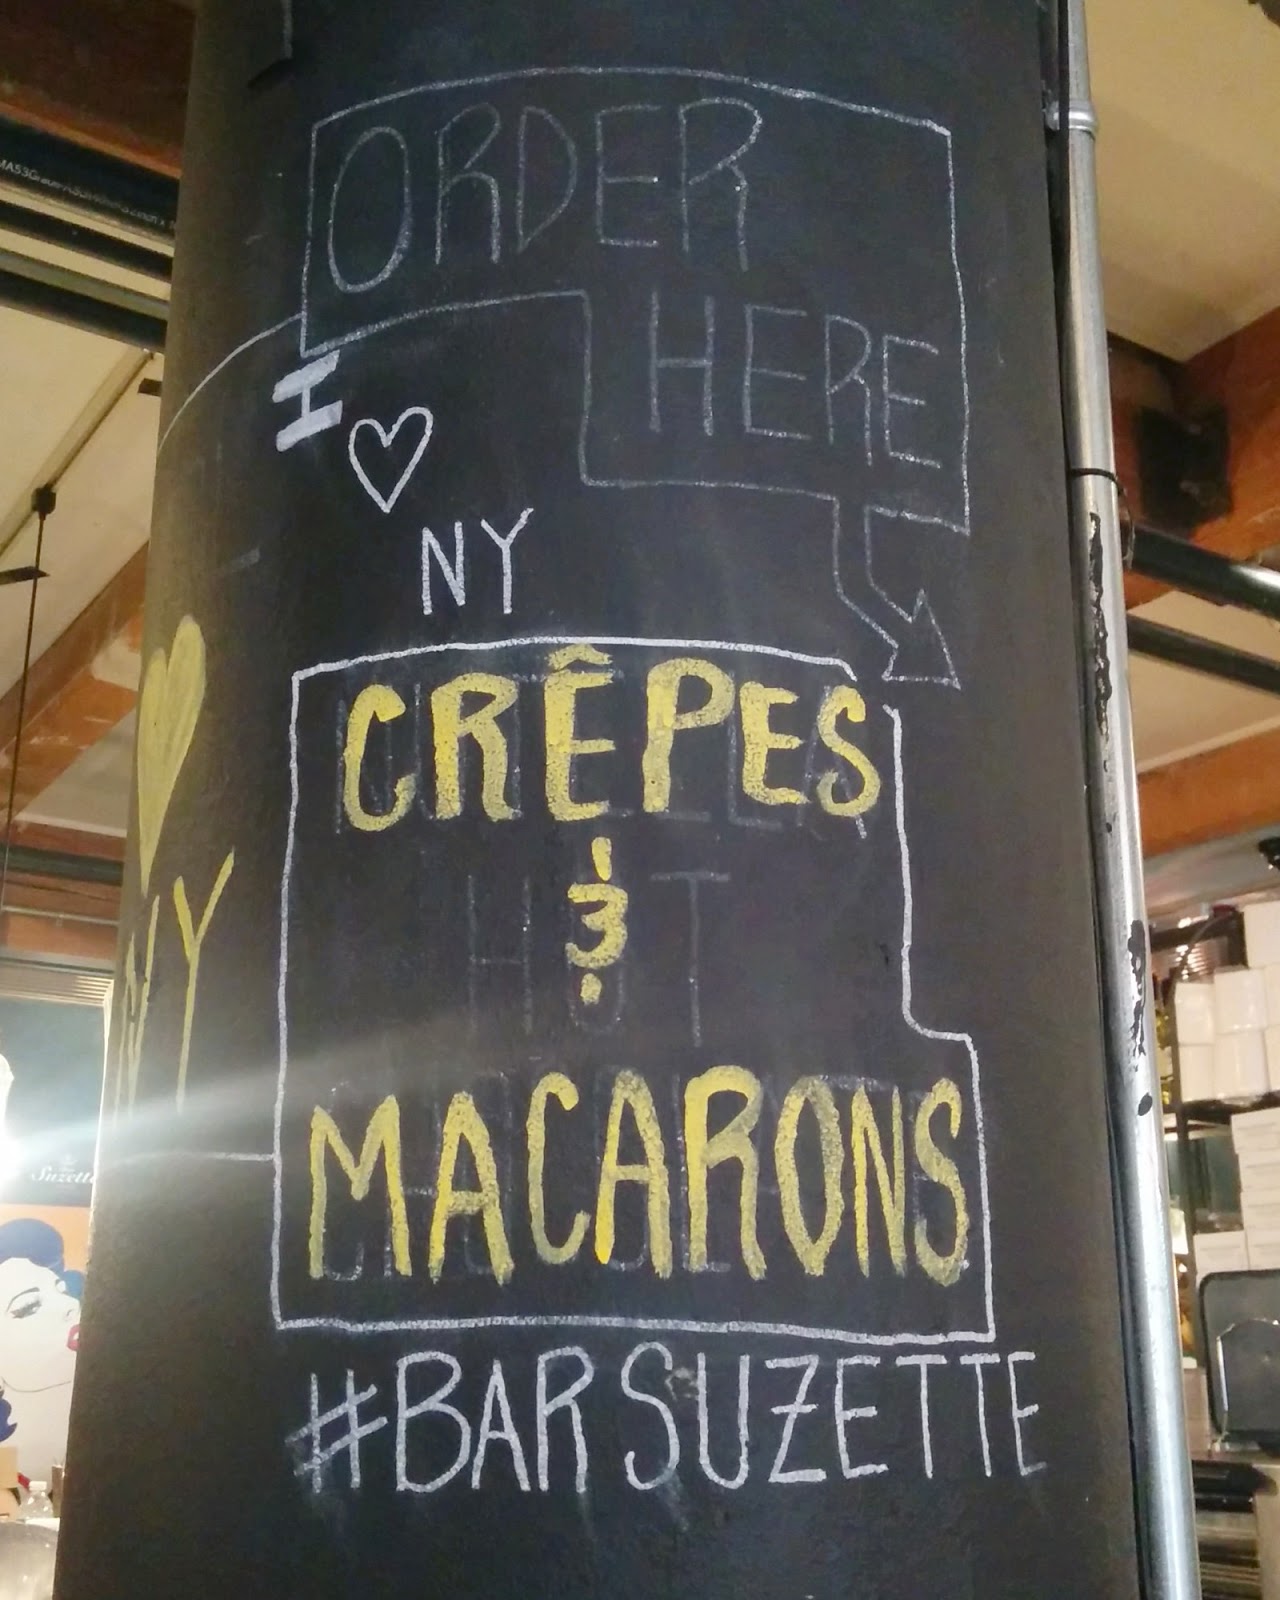 ORDER
HERE
I
♡
NY
CRÊPES
&
MACARONS
#BARSUZETTE
NY
HOT
Suzette